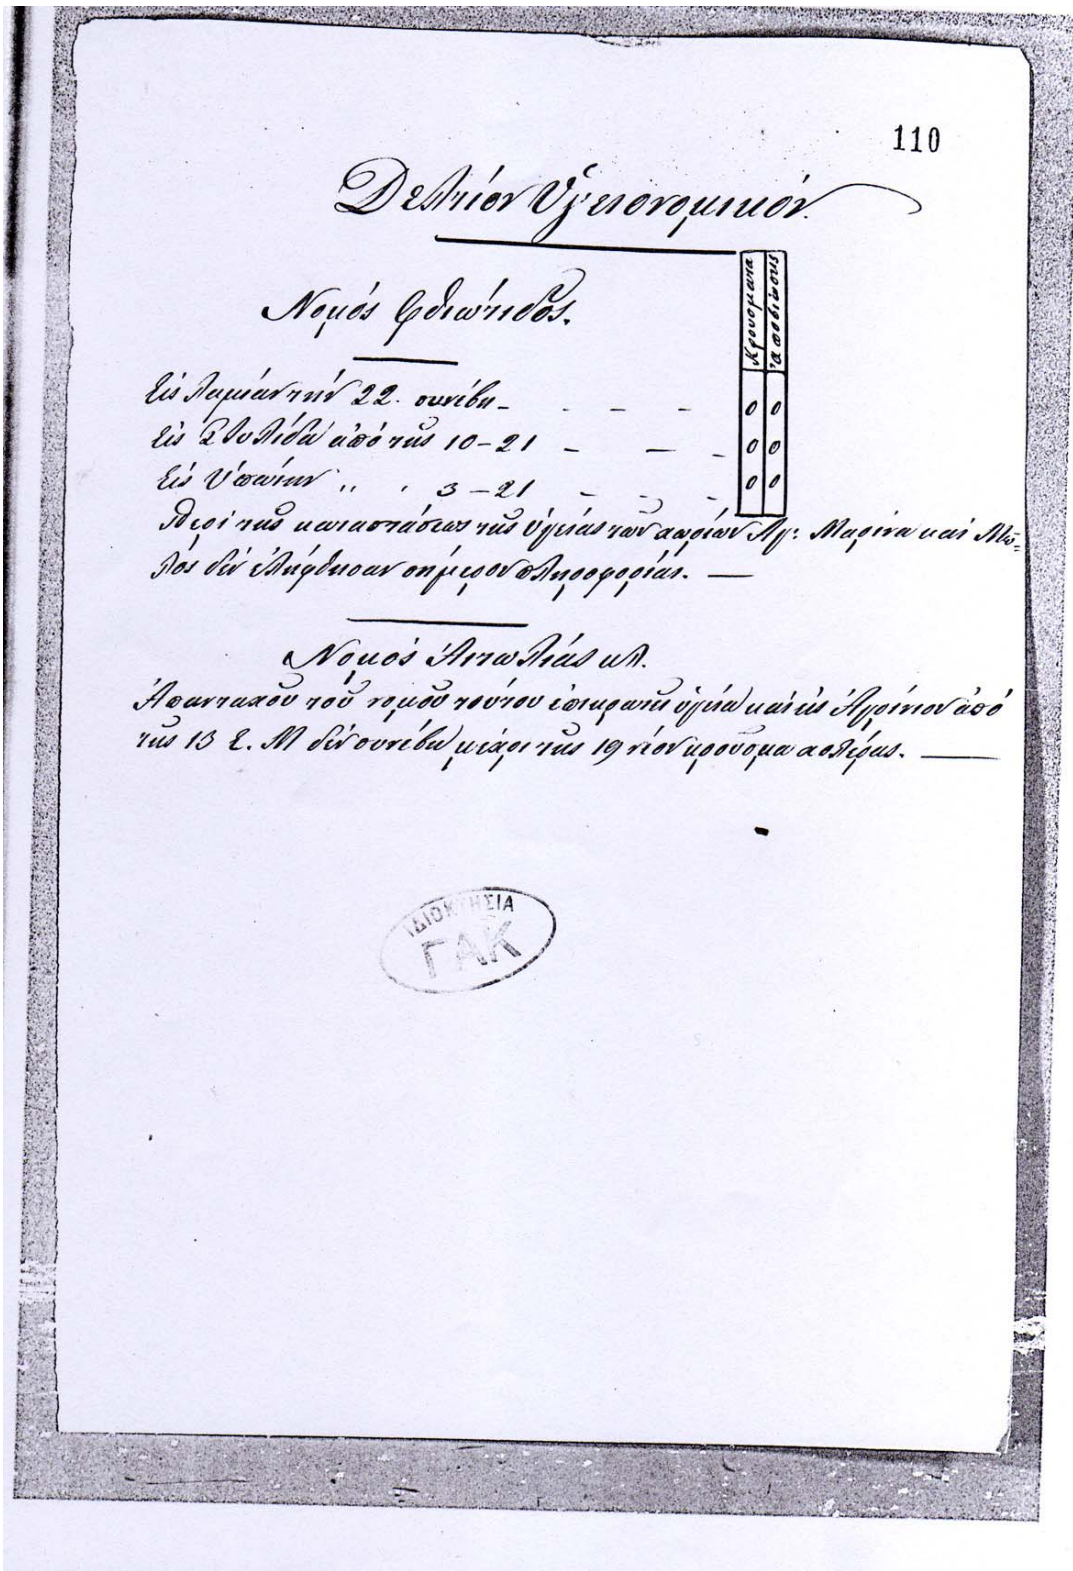 110
Δελτίον Ὑγειονομικόν.
Κρούσματα
Ἀποβιώσεις
Νομός Φθιώτιδος.
Εἰς Λαμίαν τήν 22. συνέβη - - - - 0 0
Εἰς Στυλίδα ἀπό τῆς 10-21 - - - 0 0
Εἰς Ὑπάτην " " 3-21 - - - 0 0
Περί τῆς καταστάσεως τῆς ὑγείας τῶν χωρίων Ἁγ: Μαρίνα καί
δέν ἐλήφθησαν σήμερον πληροφορίαι. —
Νομός Αἰτωλίας κλ.
Ἁπανταχοῦ τοῦ νομοῦ τούτου ἐπικρατεῖ ὑγεία καί εἰς Ἀγρίνιον ἀπό
τῆς 13 Ἐ. Μ δέν συνέβη μέχρι τῆς 19 νέον κροῦσμα χολέρας. —
ΙΔΙΟΚΤΗΣΙΑ
ΓΑΚ